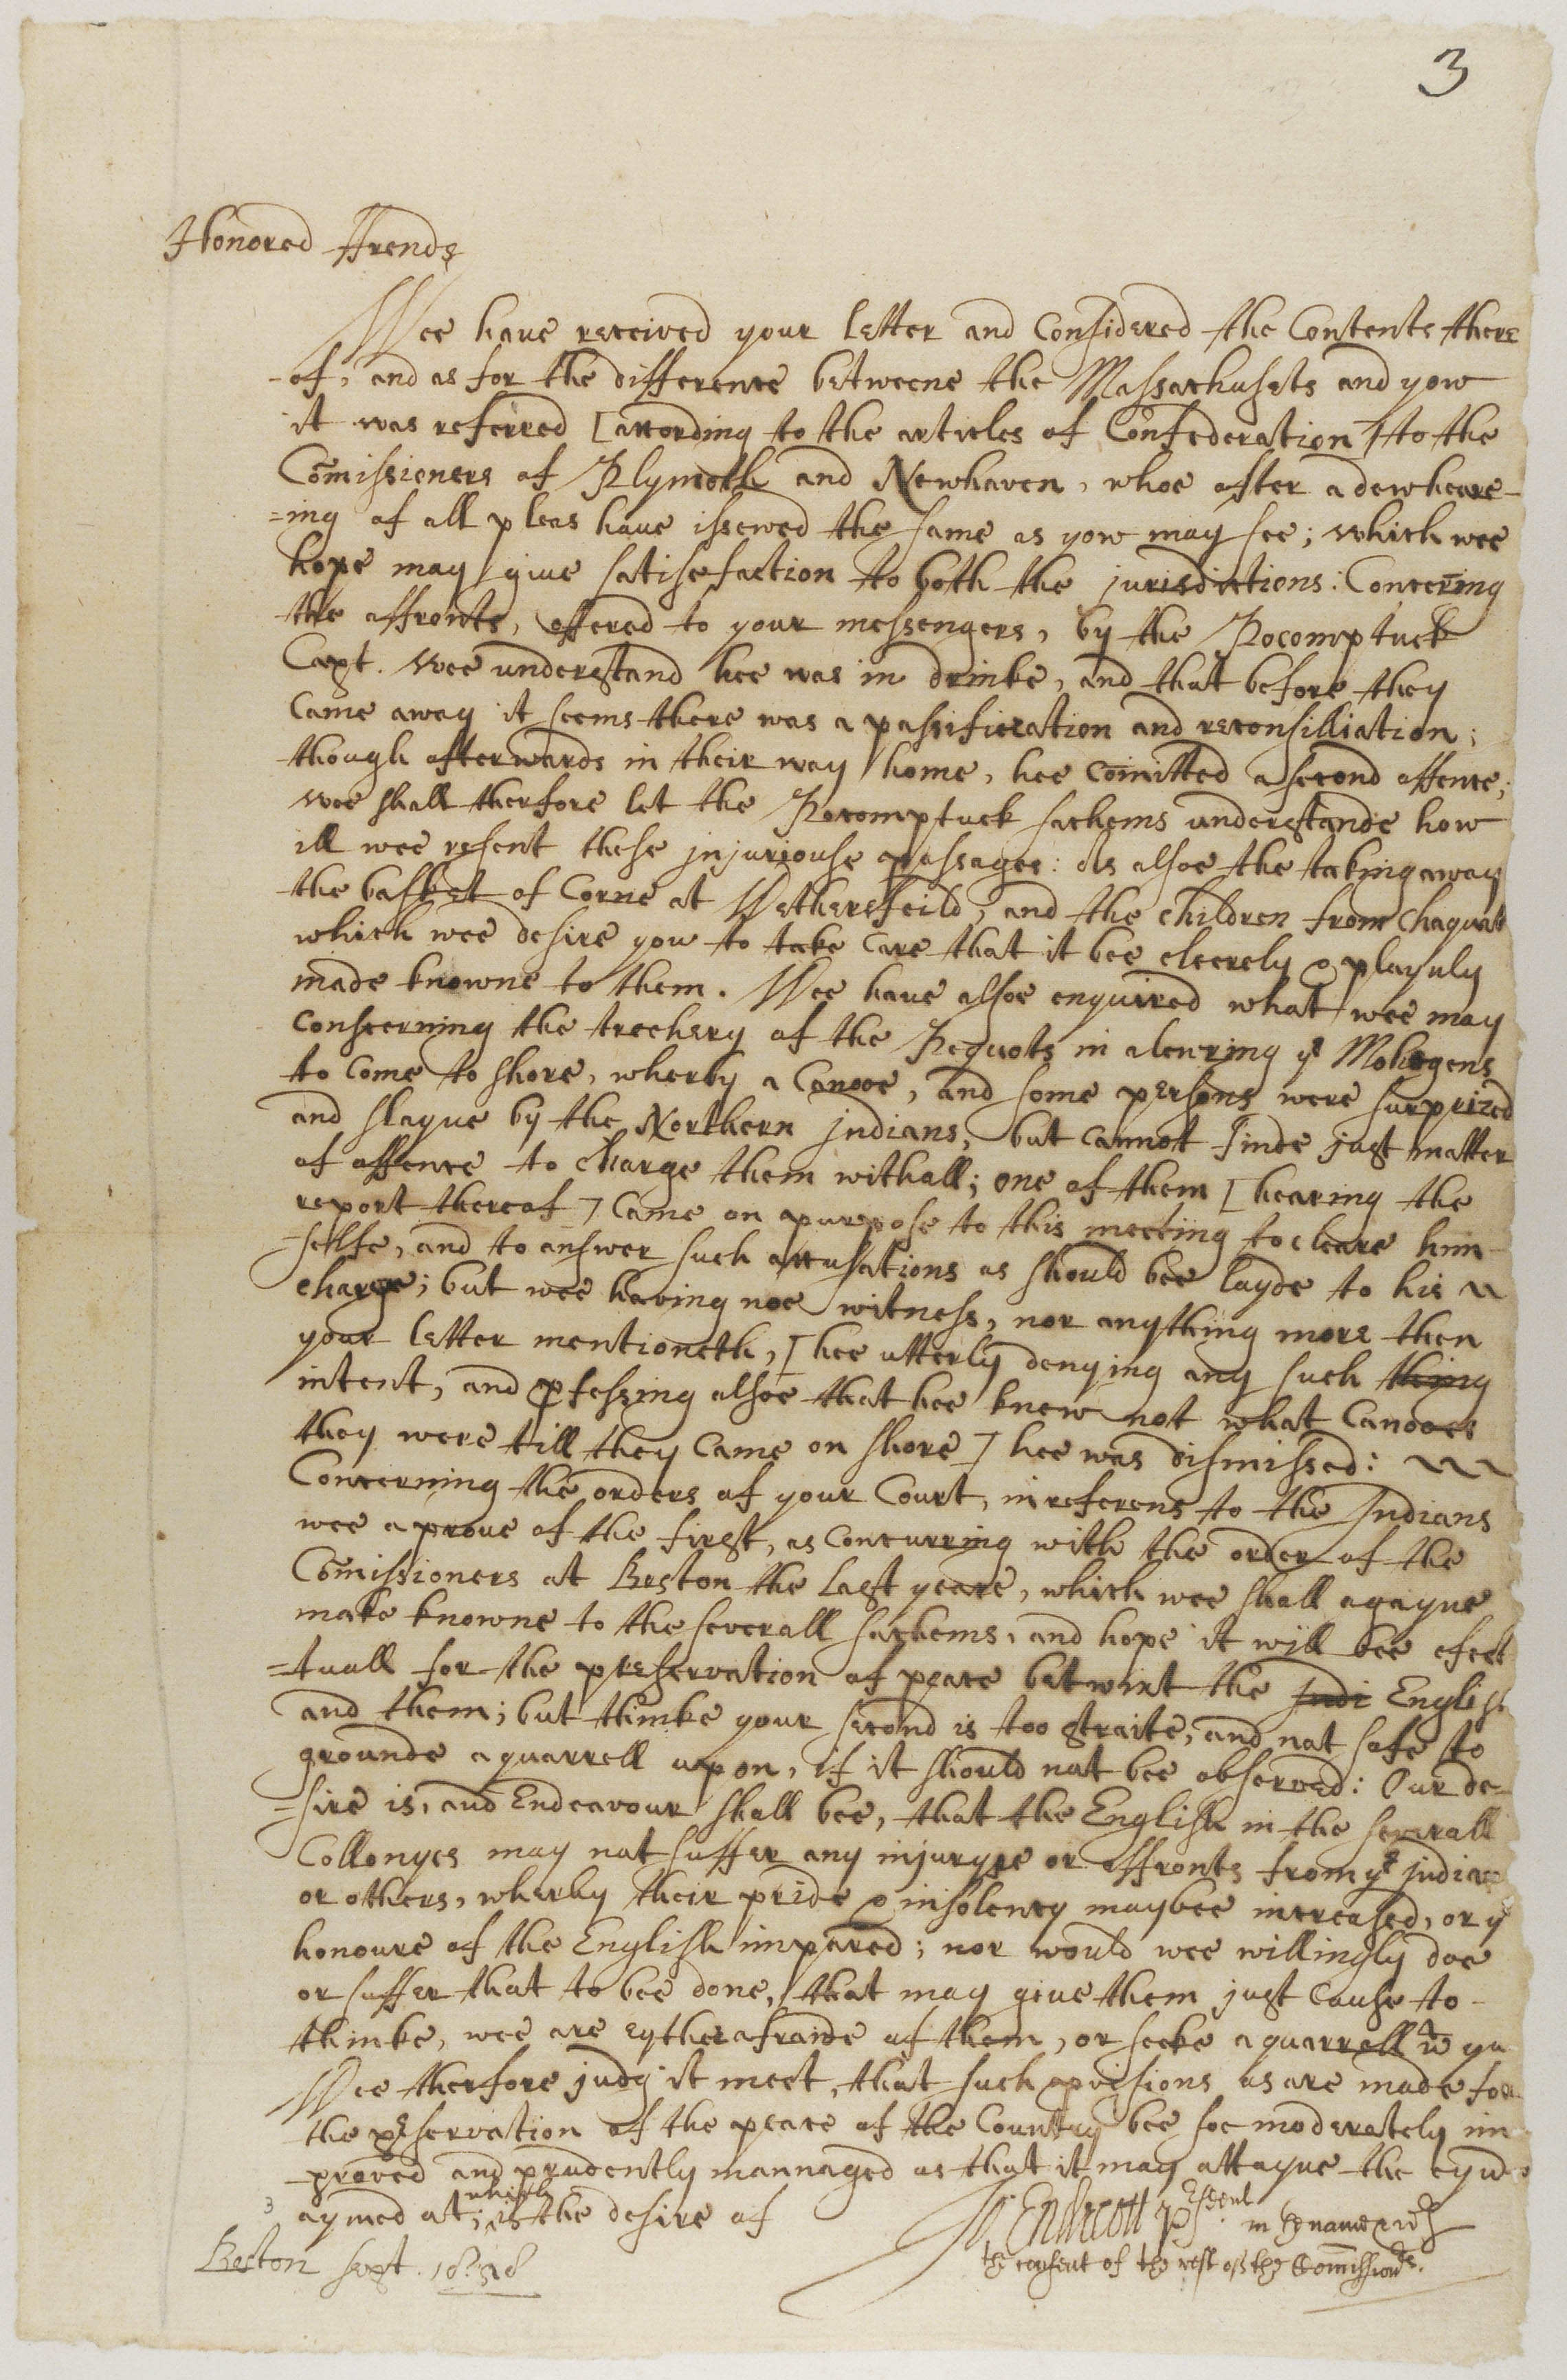 3
Honored ffrends
Wee haue received your letter and Considered the Contents there
-of, and as for the difference betweene the Massachusets and yow
it was referred [according to the articles of Confederation] to the
Comissioners of Plymoth and Newhaven, whoe after a dew heare-
=ing of all pleas haue issewed the same as yow may see; which wee
hope may giue satisefaction to both the jurisdictions: Concering
the affronts, offered to your messengers, by the Pocomptuck
Capt. wee understand hee was in drinke, and that before they
Came away it seems there was a passification and reconsilliation;
though afterwards in their way home, hee Comitted a second offence;
wee shall therfore let the Pocomptuck sachems understande how
ill wee resent these injuriouse passages: As alsoe the taking away
the basket of Corne at Wethersfeild, and the children from
which wee desire yow to take Care that it bee cleerely & playnly
made knowne to them. Wee haue alsoe enquired what wee may
Conscerning the trechery of the Pequots in alewring ye Mohegens
to Come to shore, wherby a Canooe, and some persons were surprized
and slayne by the Northern jndians, but cannot finde just matter
of offence to charge them withall; one of them [hearing the
report thereof] Came on a purpose to this meeting to cleare him-
-selfe, and to answer such accusations as should bee layde to his
charge; but wee having noe witness, nor anything more then
your letter mentioneth, [hee utterly denying any such thing
intent, and pfessing alsoe that hee knew not what Canooes
they were till they Came on shore] hee was dismissed:
Concerning the orders of your Court, in referens to the Indians
wee aproue of the first, as Concurring with the order of the
Comissioners at Boston the last yeare, which wee shall agayne
make knowne to the severall sachems, and hope it will bee efect
=tuall for the preservation of peace betwixt the Indi English
and them; but thinke your second is too straite, and not safe to
grounde a quarrell upon, if it should not bee observed: Our de-
=sire is, and Endeavour shall bee, that the English in the severall
Collonyes may not suffer any injuryes or affronts from ye jndians
or others, wherby their pride & insolency may bee increased, or ye
honoure of the English impared; nor would wee willingly doe
or suffer that to bee done, that may giue them just Cause to-
thinke, wee are eyther afraide of them, or seeke a quarrell
Wee therfore judg it meet, that such pvisions as are made for
the pservation of the peace of the Country bee soe moderately im
-proved and prudently mannaged as that it may attayne the eynd
aymed at; which is the desire of
Jo: Endecott Psident in ye name & wth
the consent of the rest of the Commissionrs.
Boston Sept. 18: 58